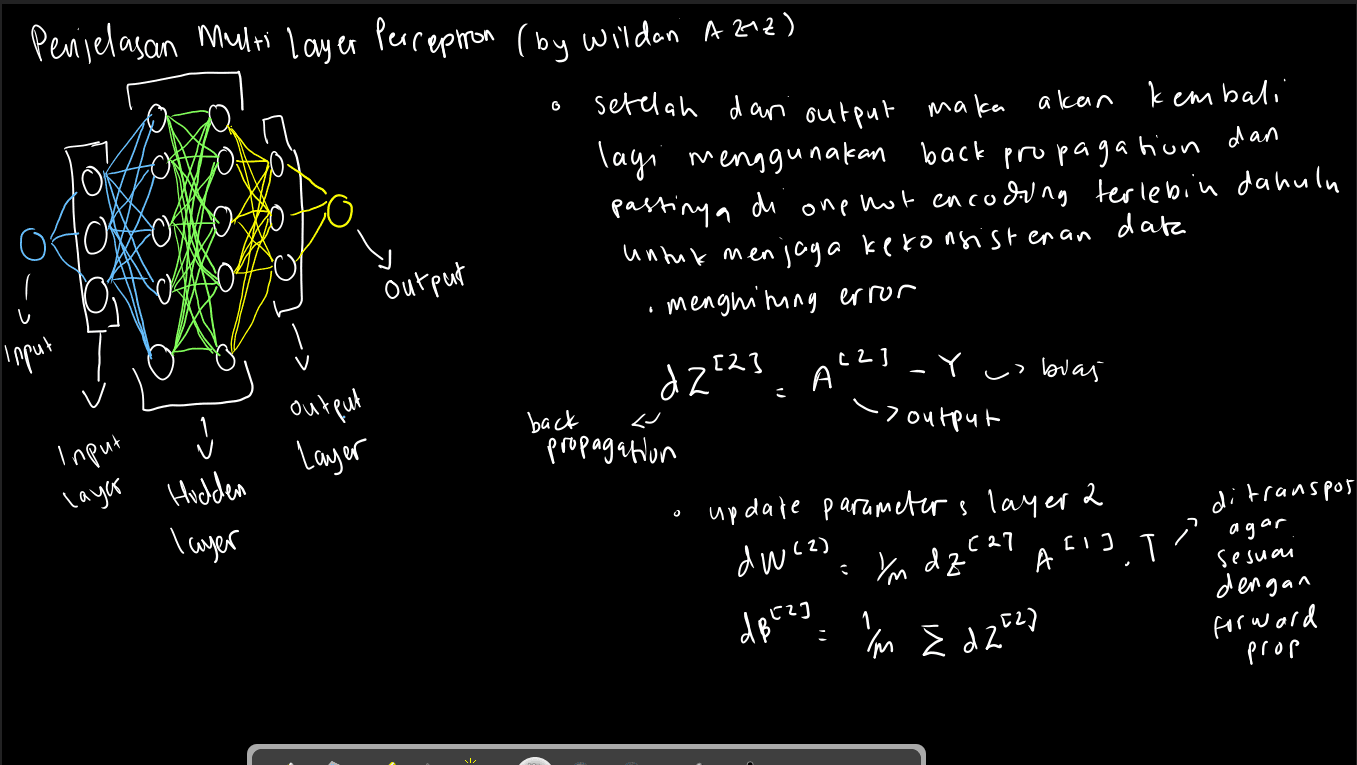 Penjelasan Multi Layer Perceptron (by Wildan Aziz)
Input
Input
Layer
Hidden
layer
Output
Layer
Output
setelah dari output maka akan kembali
lagi menggunakan back propagation dan
pastinya di one hot encoding terlebih dahulu
untuk menjaga kekonsistenan data
. menghitung error
dZ[2] = A[2] - Y -> bias
-> output
back
propagation
update parameters layer 2
dW(2) = 1/m dZ[2] A[1] . T
di transpos
agar
sesuai
dengan
forward
prop
dB[2] = 1/m Σ dZ[2]